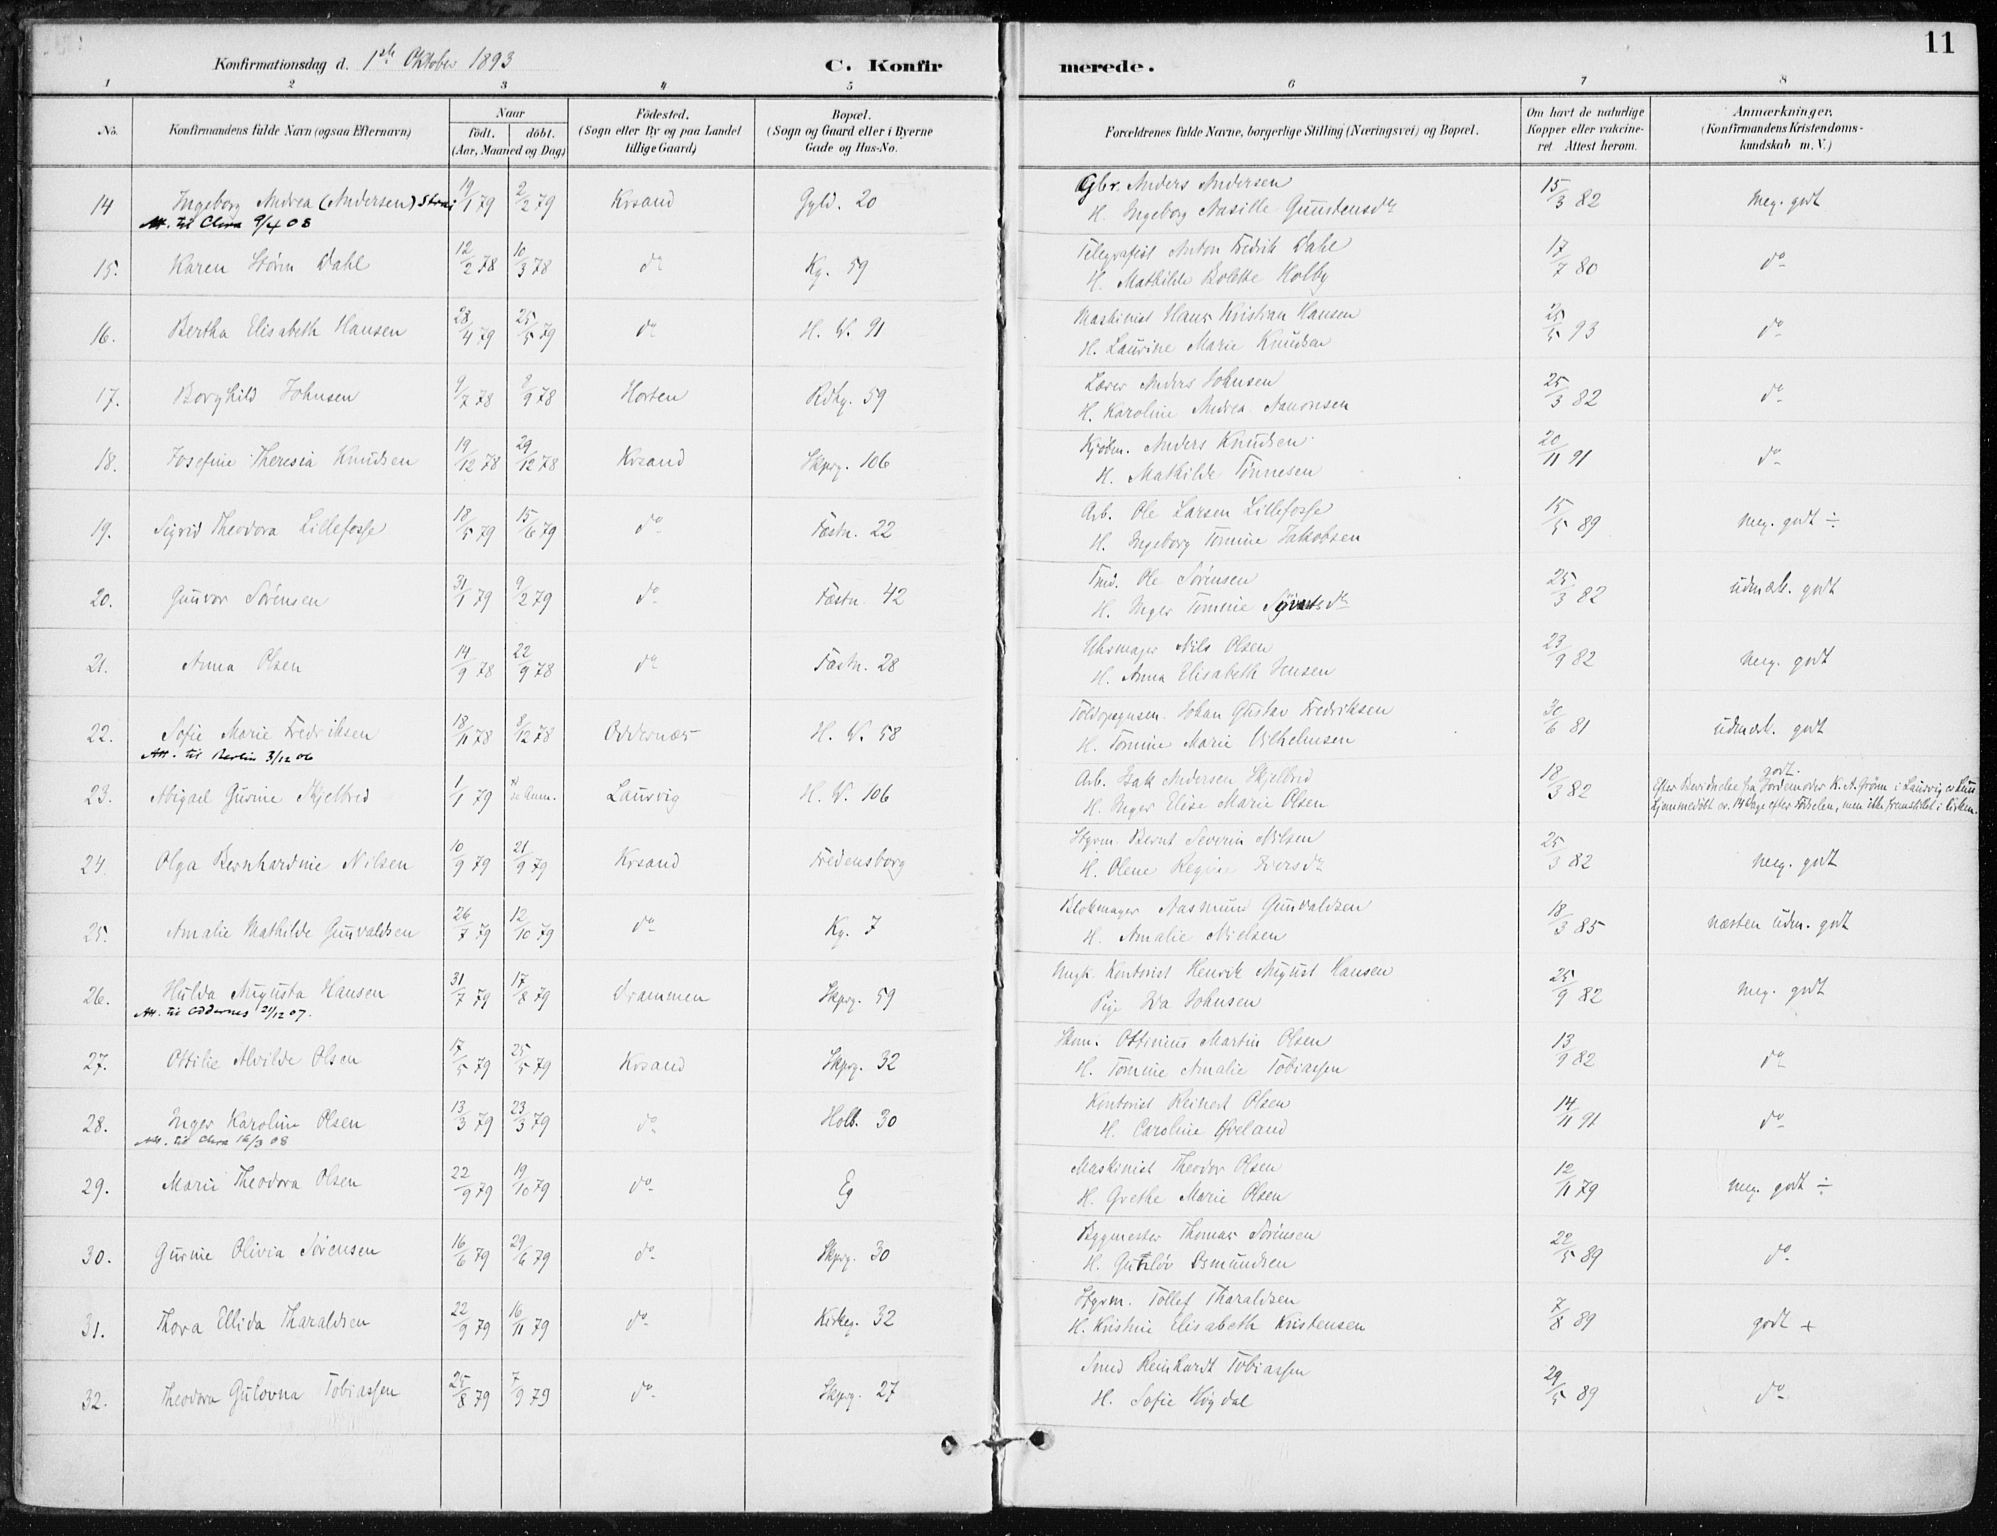 Konfirmationsdag d. 1ste Oktober 1893
C. Konfirmerede.
11
1 2 3 4 5 6 7 8
No.
Konfirmandens fulde Navn (ogsaa Efternavn)
Naar
födt. döbt.
(Aar, Maaned og Dag)
Födested.
(Sogn eller By og paa Landet
tillige Gaard)
Bopæl.
(Sogn og Gaard eller i Byerne
Gade og Hus-No.
Forældrenes fulde Navne, borgerlige Stilling (Næringsvei) og Bopæl.
Om havt de naturlige
Kopper eller vakcine-
ret. Attest herom.
Anmærkninger.
(Konfirmandens Kristendoms-
kundskab m. V.)
14 Ingeborg Andrea (Andersen) 19/1 79 2/2 79 Krsand Gyld. 20 Gbr. Anders Andersen 15/3 82 Meg. godt
Att. til Chra 9/4 08 H. Ingeborg Aasille Gundensdr
15. Karen Störm Dahl 12/2 78 10/3 78 do Kg. 59 Telegrafist Anton Fredrik Dahl 17/7 80 do
H. Mathilde Bolette Holby
16. Bertha Elisabeth Hansen 28/4 79 25/5 79 do H. W. 91 Maskinist Hans Kristian Hansen 25/5 93 do
H. Laurine Marie Knudsen
17. Borghild Johnsen 9/7 78 8/9 78 Horten Rdhg. 59 Lærer Anders Johnsen 25/3 82 do
H. Karoline Andrea Aanonsen
18. Josefine Theresia Knudsen 19/12 78 29/12 78 Krsand Skprg. 106 Kjöbm. Anders Knudsen 20/11 91 do
H. Mathilde Tönnesen
19. Sigrid Theodora Lillefosse 18/5 79 15/6 79 do Fæstn. 22 Arb. Ole Larsen Lillefosse 15/5 89 Meg. godt ÷
H. Ingeborg Tomine Jakobsen
20. Gunvor Sörensen 31/1 79 9/2 79 do Fæstn. 42 Tmd. Ole Sörensen 25/3 82 udmærk. godt
H. Inger Tomine Sjvertsdr
21. Anna Olsen 14/9 78 22/9 78 do Fæstn. 28 Uhrmager Nils Olsen 23/9 82 Meg. godt
H. Anna Elisabeth Jensen
22. Sofie Marie Fredriksen 18/11 78 8/12 78 Oddernæs H. W. 58 Toldopsynsm. Johan Gustav Fredriksen 30/6 81 udmærk. godt
Att. til Berlin 3/12 06 H. Tomine Marie Vilhelmsen
23. Abigael Gurine Skjelbred 1/1 79 Laurvig H. W. 106 Arb. Isak Andersen Skjelbred 18/3 82 godt.
H. Inger Elise Marie Olsen Efter Bevidnelse fra Jordemoder K. A. Grönn i Laurvig er hun
hjemmedöbt ca. 14 Dage efter Födselen, men ikke fremstillet i Kirken.
24. Olga Bernhardine Nilsen 10/9 79 21/9 79 Krsand Fredensborg Styrm. Bernt Severin Nilsen 25/3 82 Meg. godt
H. Olene Regine Iversdr
25. Amalie Mathilde Gunvaldsen 26/7 79 12/10 79 do Kg. 7 Blokmager Aasmund Gunvaldsen 18/3 85 næsten udm. godt
H. Amalie Nielsen
26. Hulda Augusta Hansen 31/7 79 17/8 79 Drammen Skprg. 59 Ungk. Kontorist Henrik August Hansen 25/9 82 Meg. godt
Att. til Oddernes 21/12 07. Pige Ida Johnsen
27. Ottilie Alvilde Olsen 17/5 79 25/5 79 Krsand Skprg. 32 Skom. Ottinius Martin Olsen 13/9 82 do
H. Tomine Amalie Tobiassen
28. Inger Karoline Olsen 13/3 79 23/3 79 do Holb. 30 Kontorist Reinert Olsen 14/11 91 do
Att. til Chra 16/3 08 H. Caroline Öveland
29. Marie Theodora Olsen 22/9 79 19/10 79 do Eg Maskinist Theodor Olsen 12/11 79 Meg. godt ÷
H. Grethe Marie Olsen
30. Gurine Olivia Sörensen 16/6 79 29/6 79 do Skprg. 30 Bygmester Thomas Sörensen 22/5 89 do
H. Gunlöv Osmundsen
31. Thora Ellida Tharaldsen 22/9 79 16/11 79 do Kirkeg. 32 Styrm. Tollef Tharaldsen 7/8 89 godt +
H. Kristine Elisabeth Kristensen
32. Theodora Gulovna Tobiassen 25/8 79 7/9 79 do Skprg. 27 Smed Reinhardt Tobiassen 29/5 89 do
H. Sofie Högdal